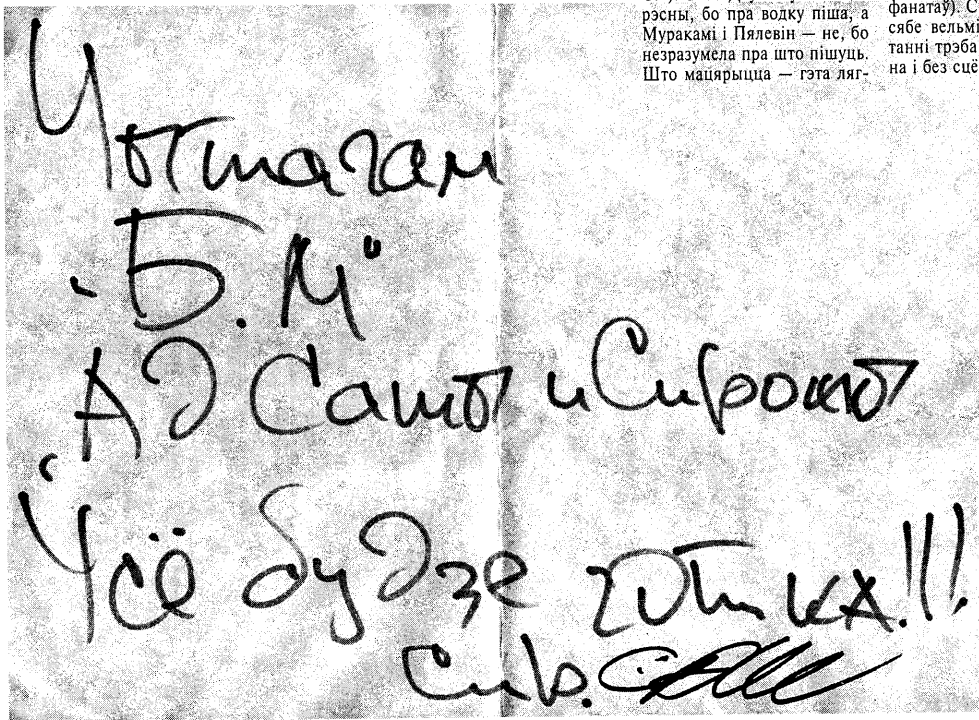 рэсны, бо пра водку піша, а
Муракамі і Пялевін — не, бо
незразумела пра што пішуць.
Што мацярыцца — гэта ляг-
фанатаў). С
сябе вельмі
танні трэба
на і без сцё
Чытачам
"Б.М"
Ад Сашы и Сирожы
Усё будзе готика!!!